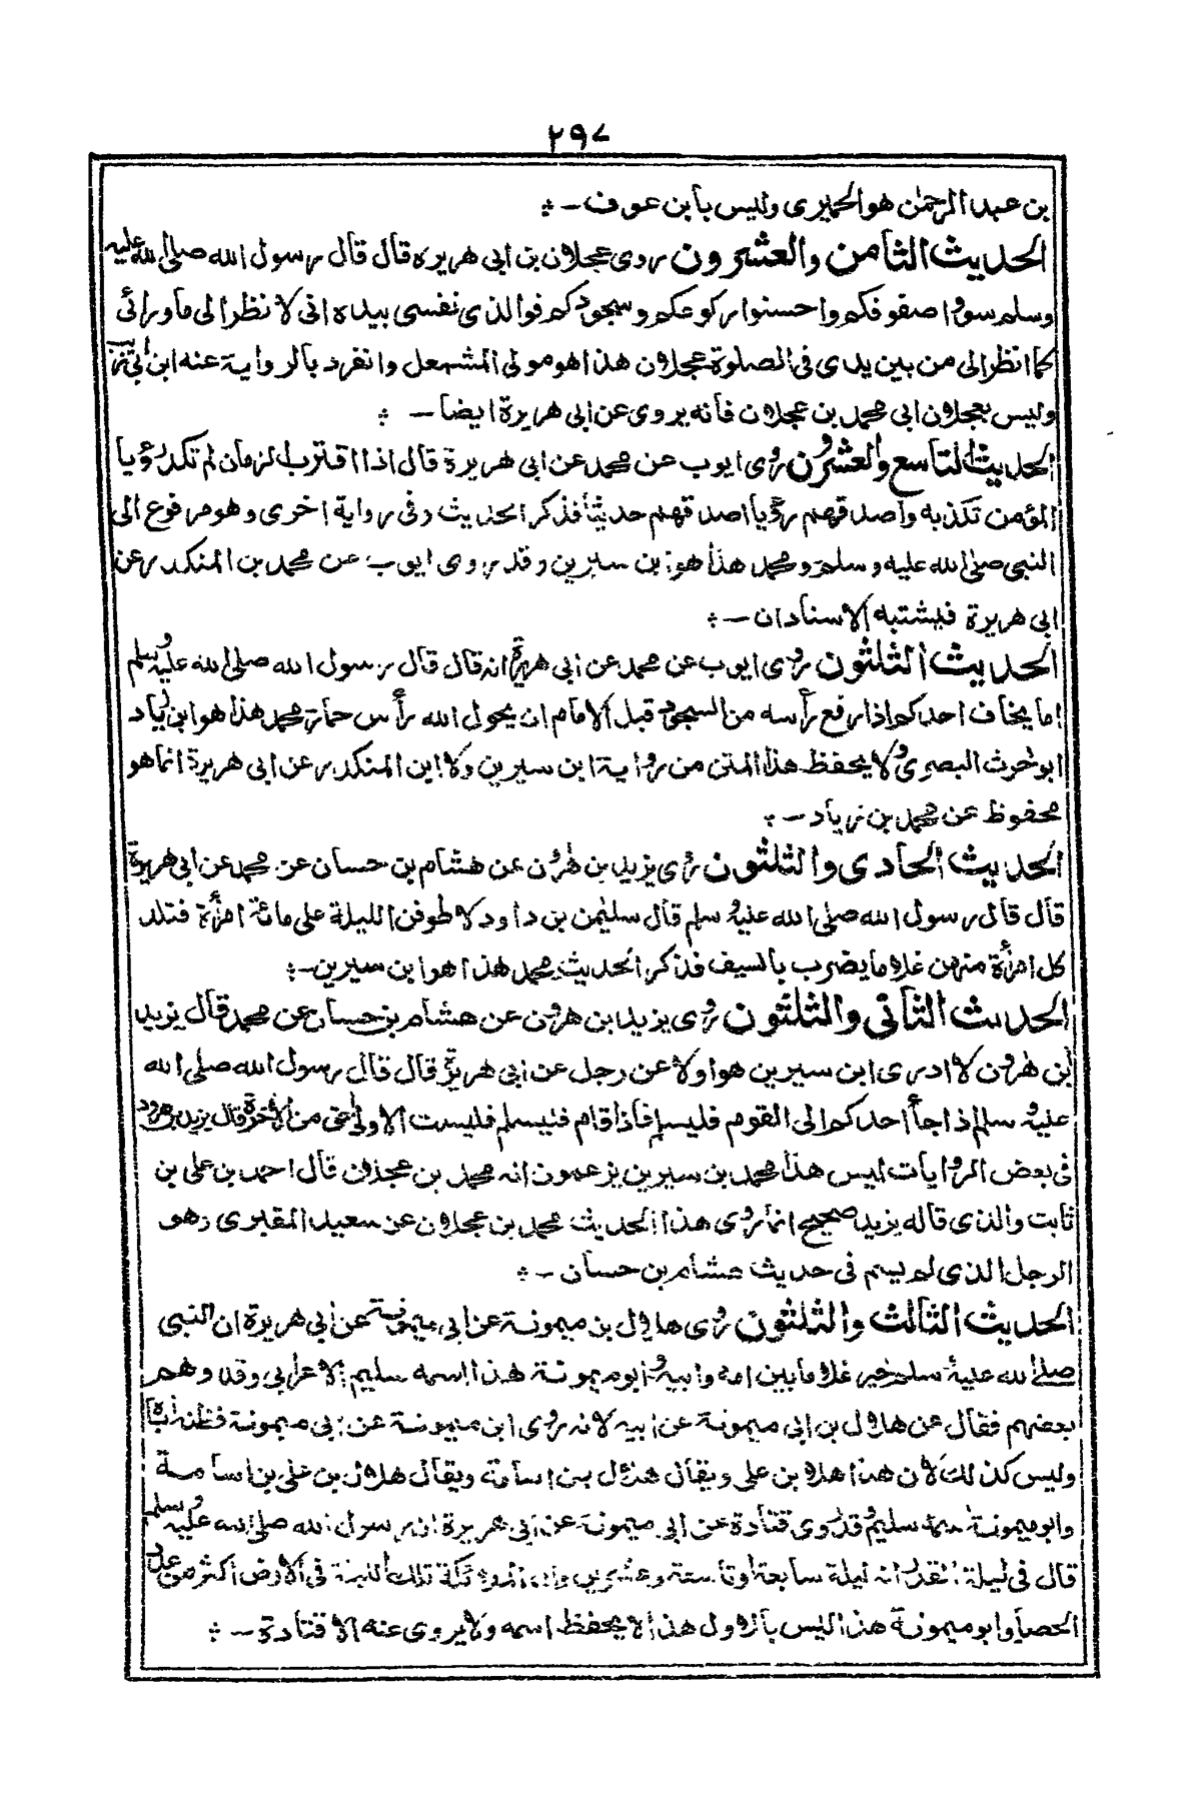 ٢٩٧
بن عبد الرحمٰن هو الحميرى وليس بابن عوف -
الحديث الثامن والعشرون روى عجلان بن ابى هريرة قال قال رسول الله صلى الله عليه
وسلم سووا صفوفكم واحسنوا ركوعكم وسجودكم فوالذى نفسى بيده انى لانظر الى ماورائى
كما انظر الى من بين يدى فى الصلوة عجلان هذا هو مولى المشمعل وانفرد بالرواية عنه ابن ابى
وليس بعجلان ابى محمد بن عجلان فانه يروى عن ابى هريرة ايضا -
الحديث التاسع والعشرون روى ايوب عن محمد عن ابى هريرة قال اذا اقترب الزمان لم تكد رؤيا
المؤمن تكذبه واصدقهم رؤيا اصدقهم حديثا فذكر الحديث وفى رواية اخرى وهو مرفوع الى
النبى صلى الله عليه وسلم ومحمد هذا هو بن سيرين وقد روى ايوب عن محمد بن المنكدر عن
ابى هريرة فيشتبه الاسنادان -
الحديث الثلثون روى ايوب عن محمد عن ابى هريرة انه قال قال رسول الله صلى الله عليه وسلم
اما يخاف احدكم اذا رفع رأسه من السجود قبل الامام ان يحول الله رأس حمار محمد هذا هو ابن زياد
ابو حٰرث البصرى ولا يحفظ هذا المتن من رواية ابن سيرين ولا ابن المنكدر عن ابى هريرة انما هو
محفوظ عن محمد بن زياد -
الحديث الحادى والثلثون روى يزيد بن هٰرون عن هشام بن حسان عن محمد عن ابى هريرة
قال قال رسول الله صلى الله عليه وسلم قال سليمٰن بن داود لاطوفن الليلة على مائة امرأة فتلد
كل امرأة منهن غلاما يضرب بالسيف فذكر الحديث محمد هذا هو ابن سيرين -
الحديث الثانى والثلثون روى يزيد بن هرون عن هشام بن حسان عن محمد قال يزيد
ابن هٰرون لا ادرى ابن سيرين هو اولا عن رجل عن ابى هريرة قال قال رسول الله صلى الله
عليه وسلم اذا جاء احدكم الى القوم فليسلم فاذا قام فليسلم فليست الاولى من الاخرة قال يزيد
فى بعض الروايات ليس هذا محمد بن سيرين يزعمون انه محمد بن عجلان قال احمد بن على بن
ثابت والذى قاله يزيد صحيح انما روى هذا الحديث محمد بن عجلان عن سعيد المقبرى وهو
الرجل الذى لم يسم فى حديث هشام بن حسان -
الحديث الثالث والثلثون روى هلال بن ميمونة عن ابى ميمونة عن ابى هريرة ان النبى
صلى الله عليه وسلم خير غلاما بين امه وابيه وابو ميمونة هذا اسمه سليم الاعرابى وقد وهم
بعضهم فقال عن هلال بن ابى ميمونة عن ابيه لانه روى ابن ميمونة عن ابى ميمونة فظنه اباه
وليس كذلك لان هذا هلال بن على ويقال هلال بن اسامة ويقال هلال بن على بن اسامة
وابو ميمونة سليم وقد روى قتادة عن ابى ميمونة عن ابى هريرة ان رسول الله صلى الله عليه وسلم
قال فى ليلة القدر انه ليلة سابعة او تاسعة وعشرين وان تلك الليلة فى الارض اكثر من عدد
الحصا وابو ميمونة هذا ليس بالاول هذا لا يحفظ اسمه ولا يروى عنه الا قتادة -